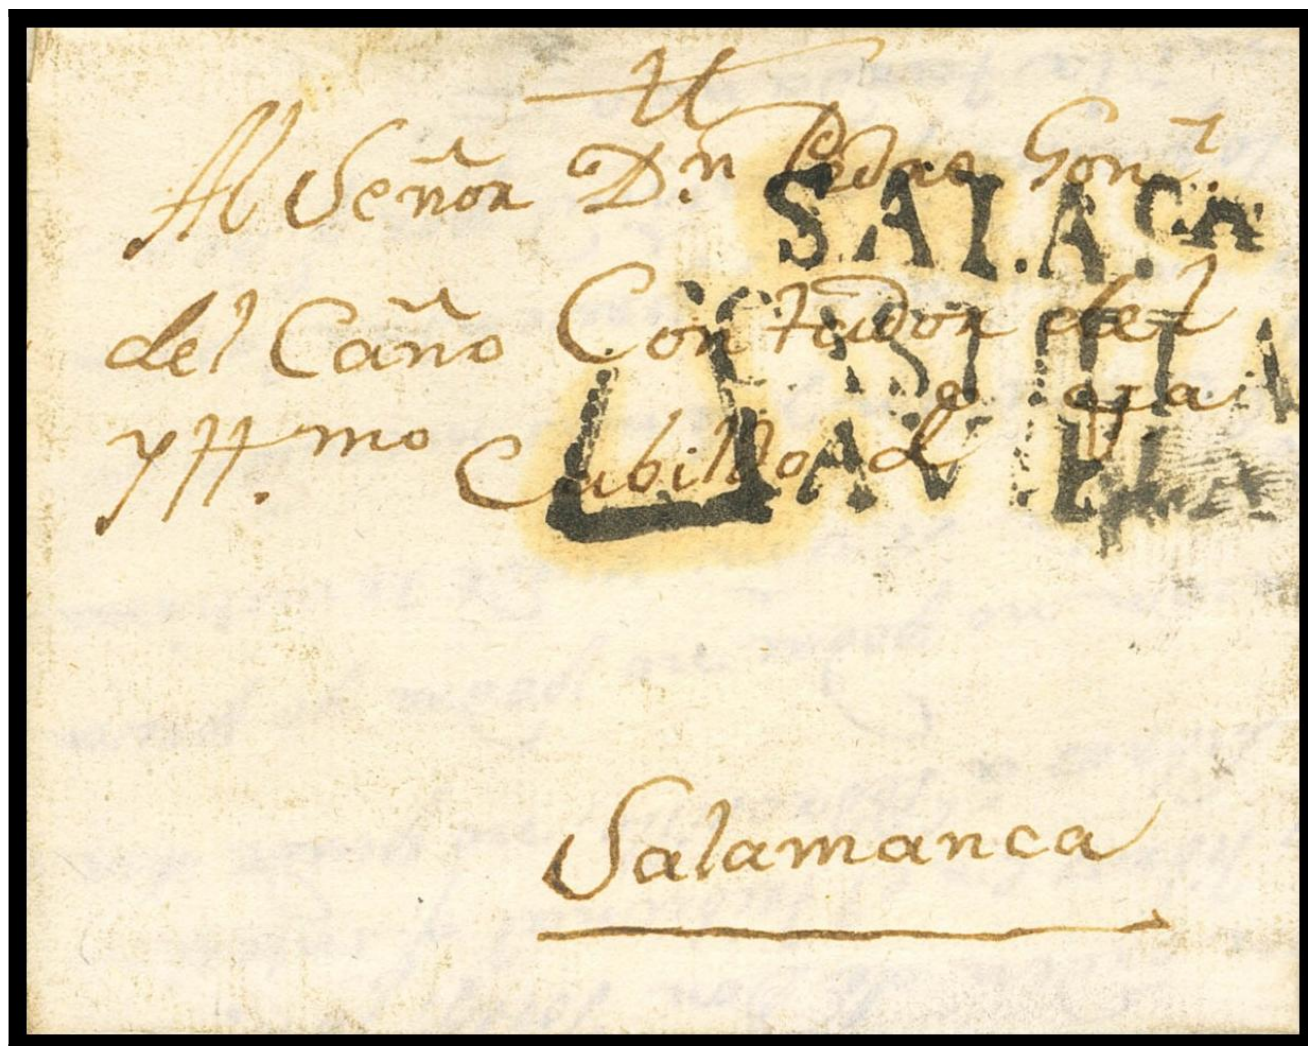 Al Señor Dn. Pedro Gonz
SALA.CA
del Caño Contador del
CASTILLA
Yttmo. Cabildo de esa
LA VIEJA
Salamanca